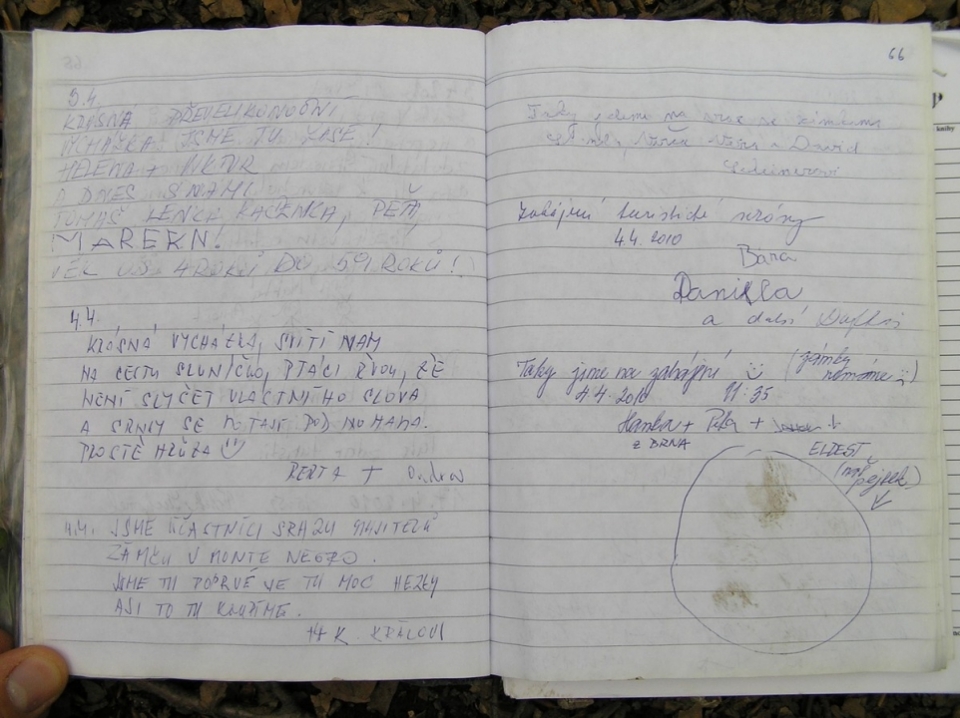 3.4.
KRÁSNÁ PŘEDVELIKONOČNÍ
VYCHÁZKA. JSME TU ZASE!
HELENA + VIKTOR
A DNES S NAMI
TOMÁŠ LENCA KAČENCA, PEŤA,
MAREKN!
VĚK OD 4 ROKŮ DO 59 ROKŮ!
4.4.
KRÁSNÁ VYCHÁZKA, SVÍTÍ NÁM
NA CESTU SLUNÍČKO, PTÁCI ŘVOU, ŽE
NENÍ SLYŠET VLASTNÍHO SLOVA
A SRNKY SE MOTAJÍ POD NOHAMA.
PROSTĚ HRŮZA ☺
BERTA +
4.4. JSME ÚČASTNÍCI SRAZU MAJITELŮ
ZÁMKU V MONTE NEGRO.
JSME TU POPRVÉ JE TU MOC HEZKY
ASI TO TU KOUPÍME.
H + K. KRÁLOVI
66
Taky jdeme na sraz se zámkama
a David
Zahájení turistické sezóny
4.4. 2010
Bára
Daniela
a další
Taky jsme na zahájení ☺ (zámky nemáme ☹)
4.4. 2010 11:35
Hanka + Petr +
z BRNA
ELDEST
(náš pejsek)